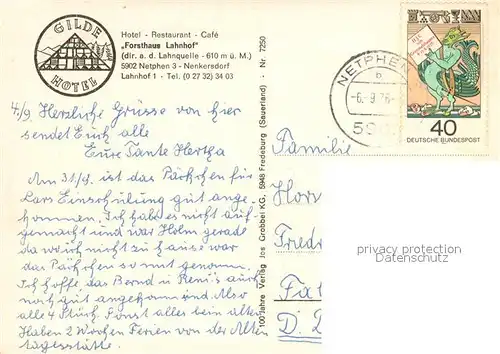 GILDE
HOTEL
Hotel - Restaurant - Café
„Forsthaus Lahnhof"
(dir. a. d. Lahnquelle - 610 m ü. M.)
5902 Netphen 3 - Nenkersdorf
Lahnhof 1 - Tel. (0 27 32) 34 03
4/9. Herzliche Grüsse von hier
sendet Euch alle
Eure Tante Hertha
Am 31/8. ist das Päkchen für
Lars Einschulung gut ange-
kommen. Ich habe es nicht auf-
gemacht und war Holm gerade
da weil ich nicht zu hause war
das Päkchen so mit genomm.
Ich hoffe, das Bernd u Reni's auch
noch gut angekomm sind. Also
alle 4 Stück sonst alles beim alten
Haben 2 Wochen Ferien von der Alten
tagesstätte.
100 Jahre Verlag Jos Grobbel KG, 5948 Fredeburg (Sauerland) - Nr. 7250
NETPHEN
-6.-9.76
590
40
DEUTSCHE BUNDESPOST
Familie
Hors
Friedr
privacy protection
www.ansichtskartenversand.com
D.